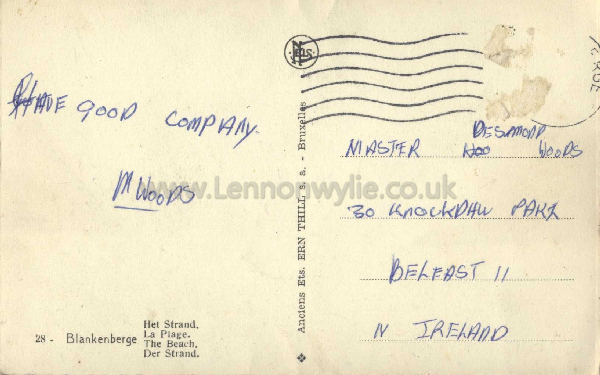 HAVE GOOD COMPANY.
M WOODS
28 - Blankenberge
Het Strand.
La Plage.
The Beach.
Der Strand.
Anciens Ets. ERN THILL s. a. - Bruxelles
DESMOND
MASTER WOODS
30 KNOCKDHU PARK
BELFAST 11
N IRELAND
www.Lennonwylie.co.uk